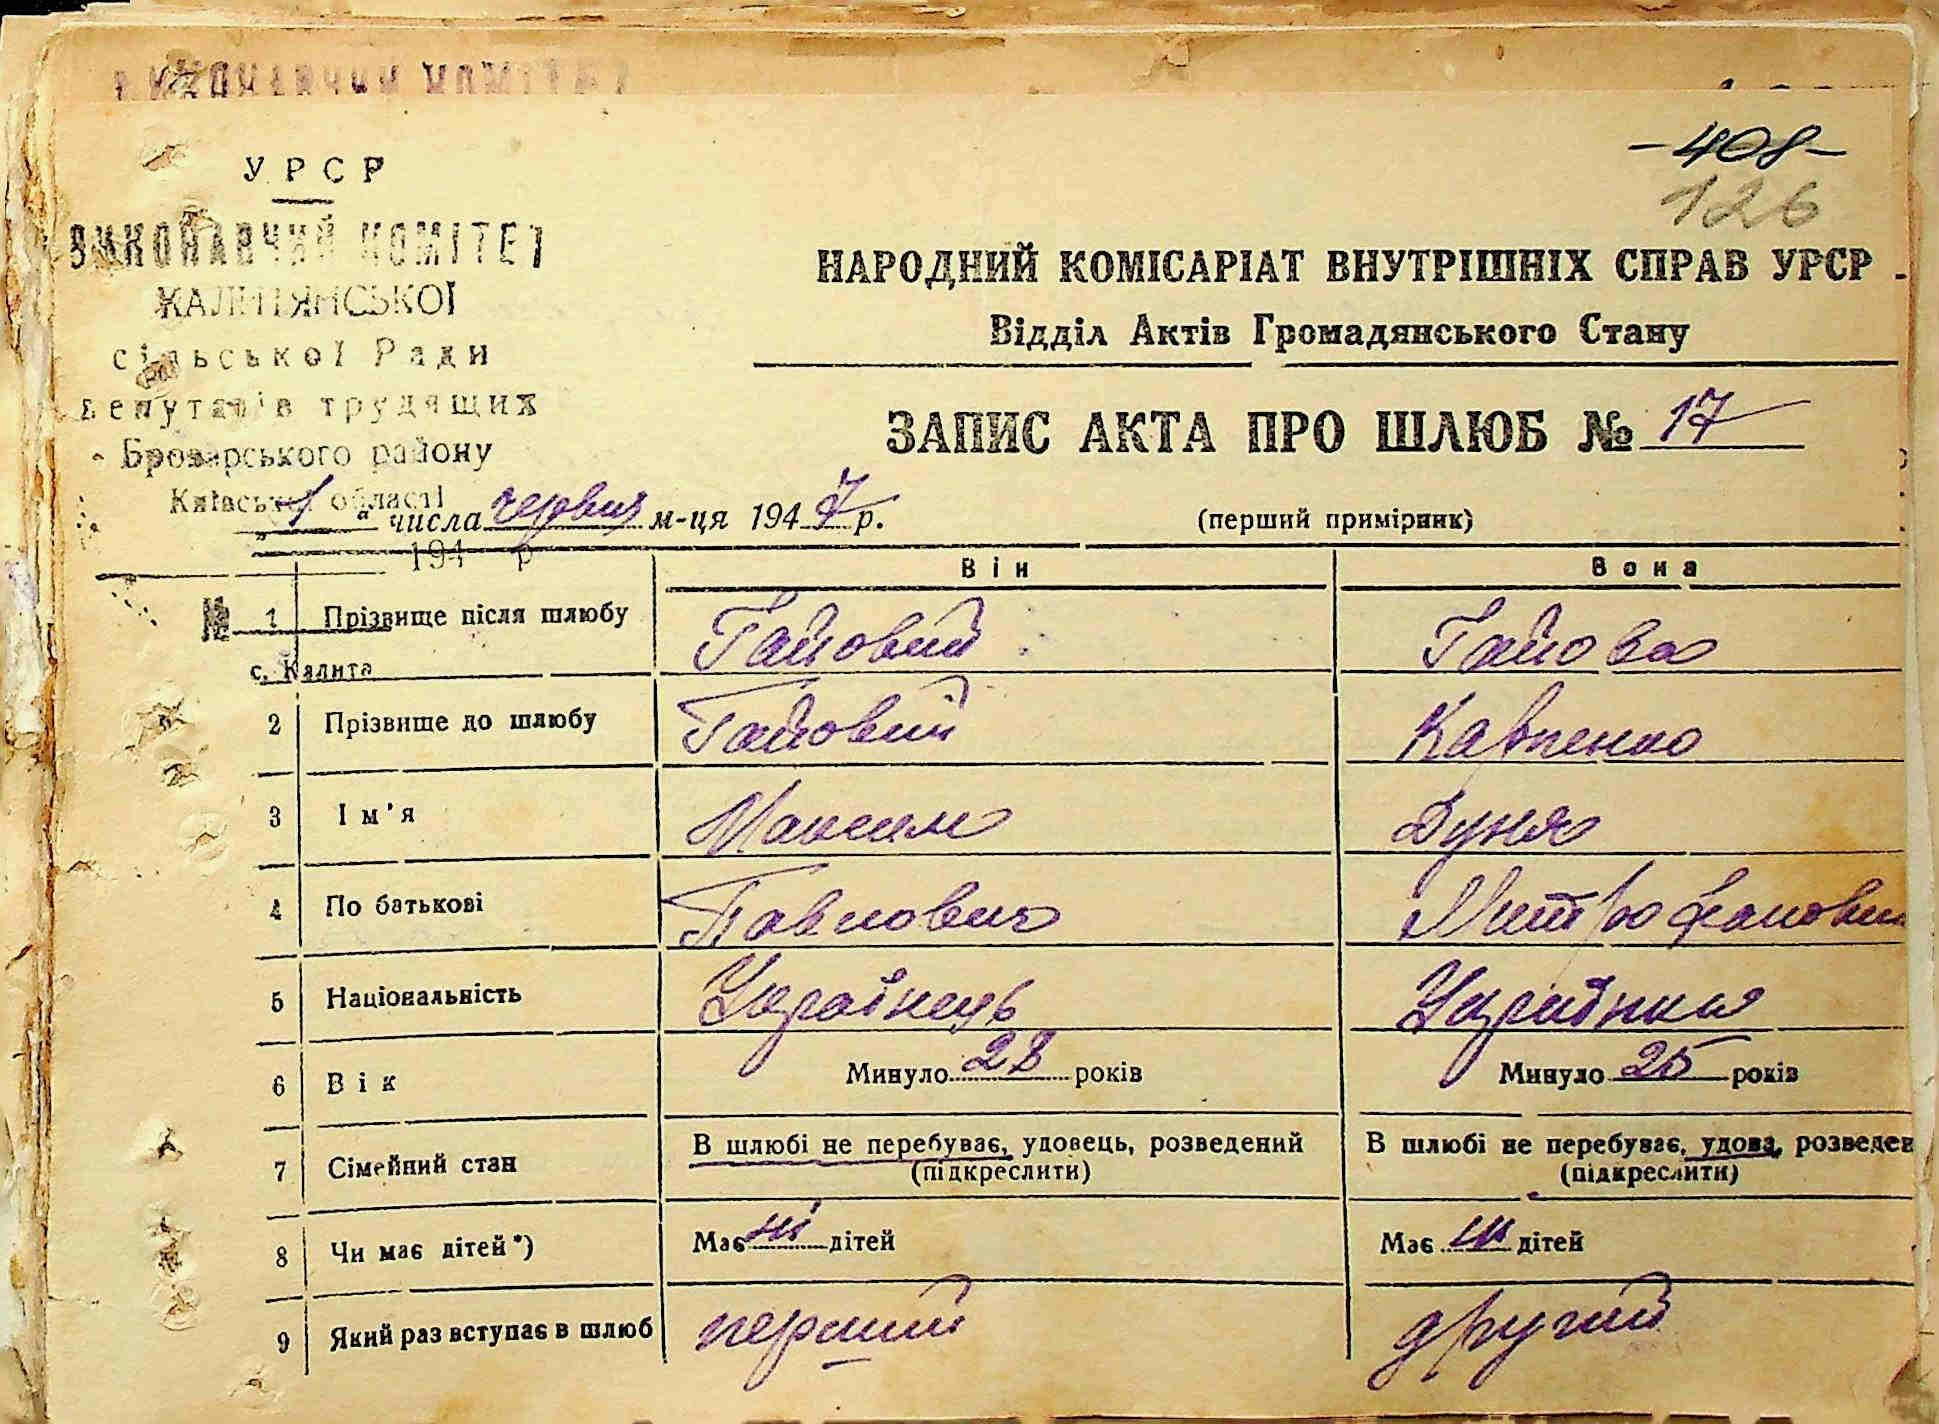 ВИКОНАВЧИЙ КОМІТЕТ
-408-
126
УРСР
ВИКОНАВЧИЙ КОМІТЕТ
КАЛИТЯНСЬКОЇ
сільської Ради
депутатів трудящих
Броварського району
Київської області
194 р
№
с. Калита
НАРОДНИЙ КОМІСАРІАТ ВНУТРІШНІХ СПРАВ УРСР
Відділ Актів Громадянського Стану
ЗАПИС АКТА ПРО ШЛЮБ № 17
„1" числа червня м-ця 1947 р. (перший примірник)
Він Вона
1 Прізвище після шлюбу Гайовий Гайова
2 Прізвище до шлюбу Гайовий Карпенко
3 Ім'я Максим Дуня
4 По батькові Павлович Митрофановн
5 Національність Українець Українка
6 Вік Минуло 28 років Минуло 25 років
7 Сімейний стан В шлюбі не перебуває, удовець, розведений В шлюбі не перебуває, удова, розведен
(підкреслити) (підкреслити)
8 Чи має дітей*) Має ні дітей Має ні дітей
9 Який раз вступає в шлюб перший другий